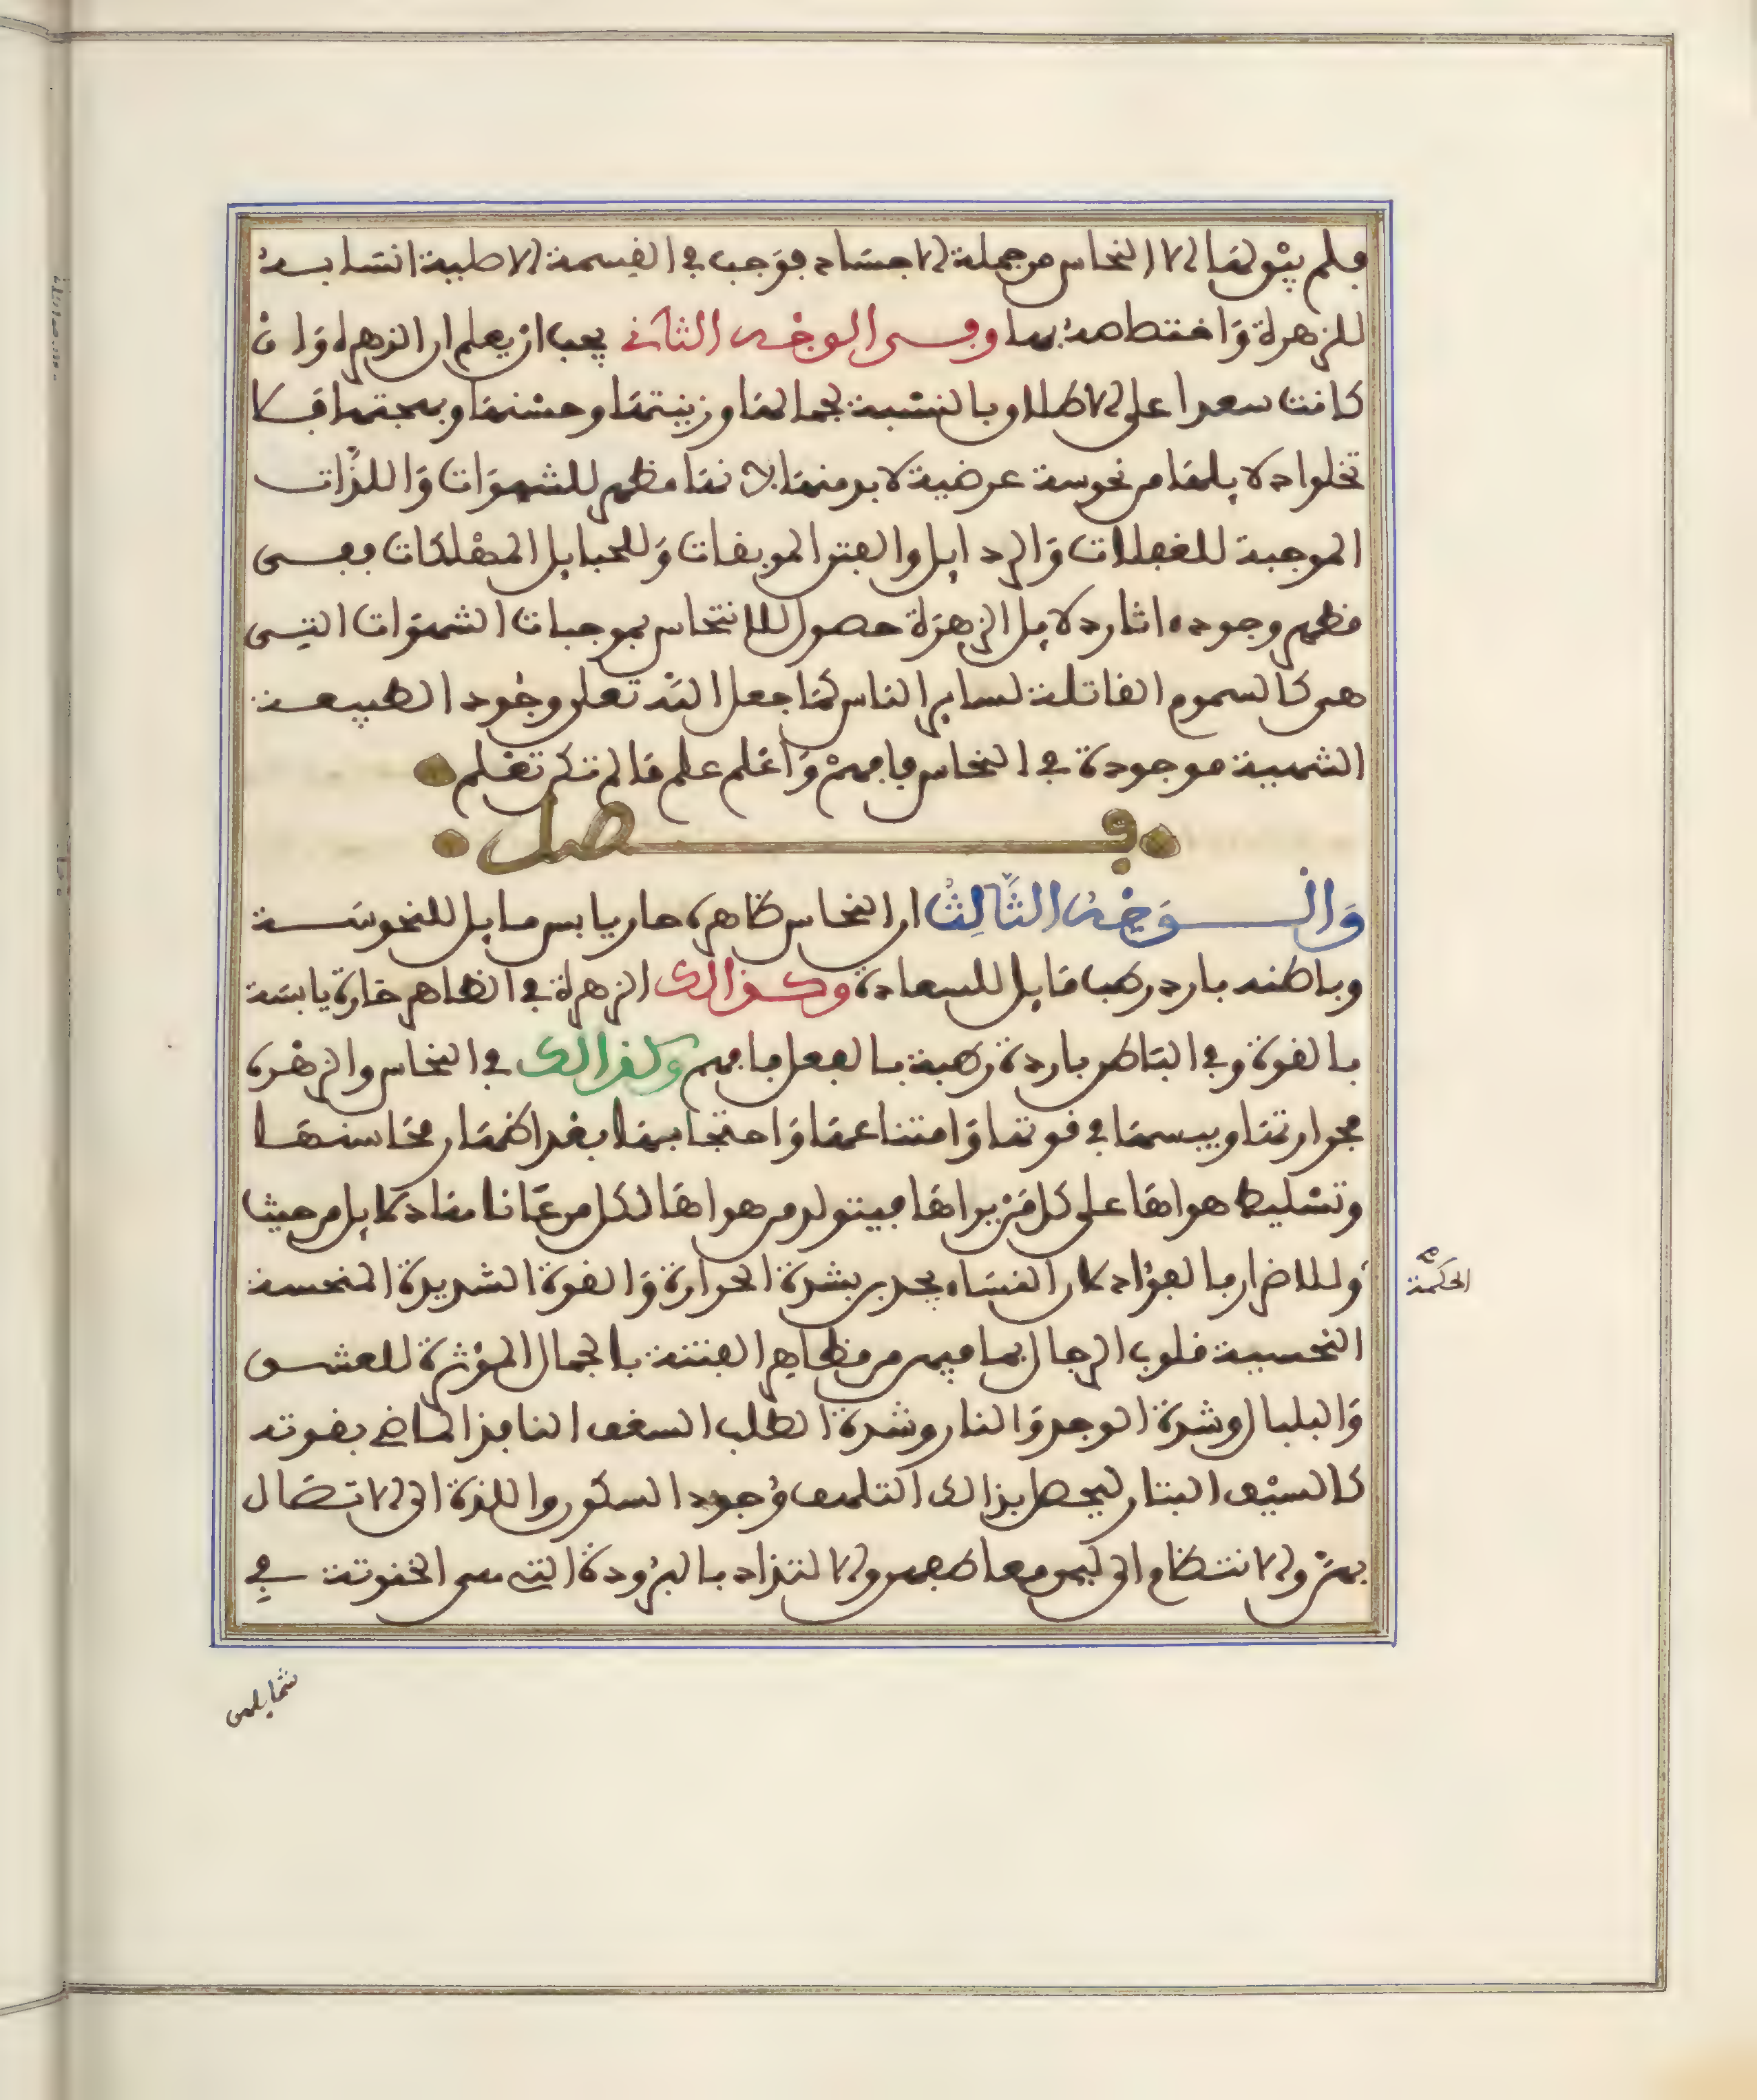 فلم يبق لها الا النحاس من جملة الاجساد فوجب في القسمة الاصلية انتسابه
للزهرة واختصاصه بها وفي الوجه الثاني يجب ان يعلم ان الزهرة وان
كانت سعدا على الاطلاق وبالنسبة لجمالها وزينتها وحسنها وبهجتها فلا
تخلوا دلايلها من نحوسة عرضية لابد منها لانها مظهر للشهوات واللذات
الموجبة للغفلات والرذايل والفتن الموبقات وللحبايل المهلكات ففي
مظهر وجوده اثار دلايل الزهرة حصول الانتحاس بموجبات الشهوات التي
هي كالسموم القاتلة لساير الناس كما جعل الله تعلى وجود الطبيعة
السمية موجودة في النحاس فافهم واعلم علم ما لم تكن تعلم
فصل
والوجه الثالث ان النحاس ظاهره حار يابس مايل للنحوسة
وباطنه بارد رطب قابل للسعادة وكذالك الزهرة في الظاهر حارة يابسة
بالقوة وفي الباطن باردة رطبة بالفعل فافهم وكذالك في النحاس والزهرة
فحرارتها ويبسها في قوتها وامتناعها واحتجابها بعد اظهار محاسنها
وتسليط هواها على كل من يراها فيتولد من هواها لكل من عاناها دلايل من حيث
والاضرار بالفؤاد لان النساء يجذبن بشدة الحرارة والقوة الشديدة المنحسة
النحسية قلوب الرجال بما فيهن من مظاهر الفتنة بالجمال المؤثرة للعشق
والبلبال وشدة الوجد والنار وشدة الطلب السغف النافذ الماضي بقوته
كالسيف البتار ليحصل بذالك التلهف وجود السكون واللذة الى الاتصال
بهن والانتظام الى لين معاطفهن والالتذاذ بالبرودة التي هي الخنوثة في
الحكمة
شمايلهن